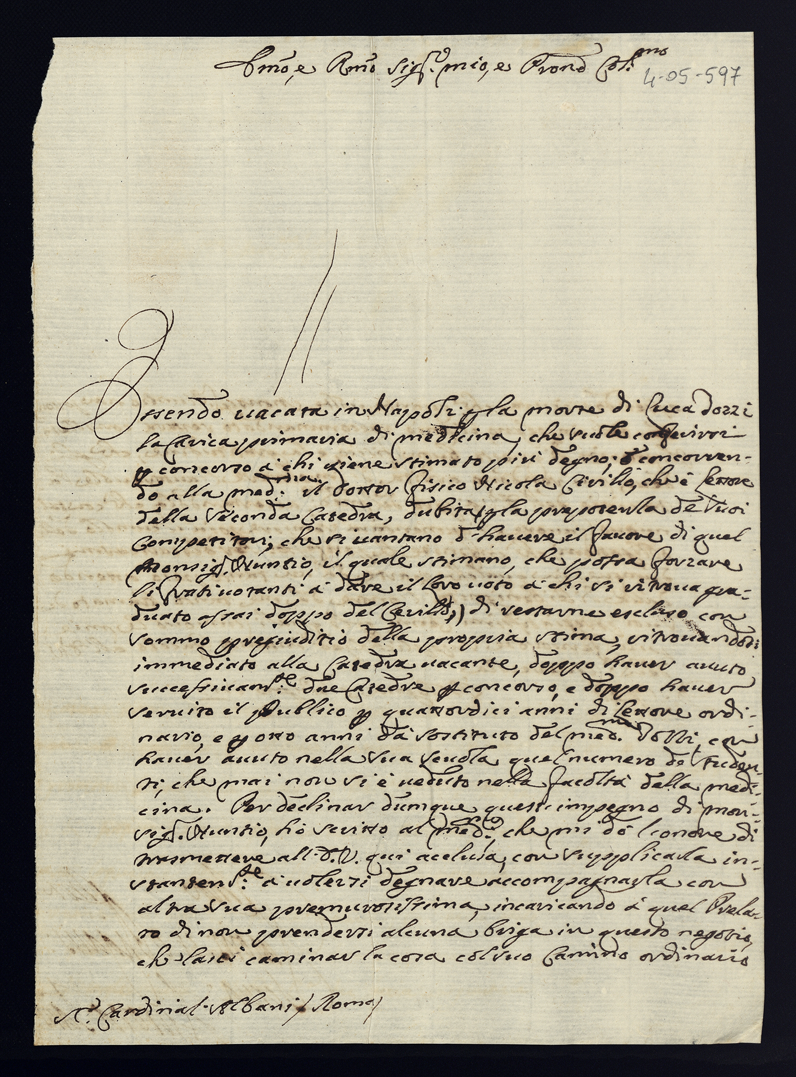 Emo, e Rmo Sigr. mio, e Prone Col.mo
4-05-597
Essendo vacata in Napoli p la morte di Luca Tozzi
la Carica primaria di medicina, che suole conferirsi
p concorso à chi viene stimato più degno; e concorren-
do alla med.ma il Dottor fisico Nicola Cirillo, che è Lettore
della Seconda Catedra, dubita p la prepotenza de suoi
Competitori, che si vantano d'havere il favore di quel
Monsig. Nuntio, il quale stimano, che possa forzare
li Frati votanti à dare il loro voto à chi si ritrova gra-
duato assai doppo del Cirillo, di restarne escluso con
sommo pregiuditio della propria stima, ritrovandosi
immediato alla Catedra vacante, doppo haver avuto
successivam.te due Catedre p concorso, e doppo haver
servito il publico p quattordici anni di Lettore ordi-
nario, e p otto anni da sostituto del med.mo Tozzi, con
haver avuto nella sua scuola quel numero di studen-
ti, che mai non si è veduto nella facoltà della medi-
cina. Per declinar dunque quest'impegno di mon-
sig. Nuntio, hò scritto al med.mo, che mi dò l'onore di
trasmettere all'E.V. qui acclusa, con supplicarla in-
stantem.te à volersi degnare accompagnarla con
altra sua premurosissima, incaricando à quel Prela-
to di non prendersi alcuna briga in questo negotio,
che lasci caminar la cosa col suo Camino ordinario
Sr. Cardinal Albani / Roma /